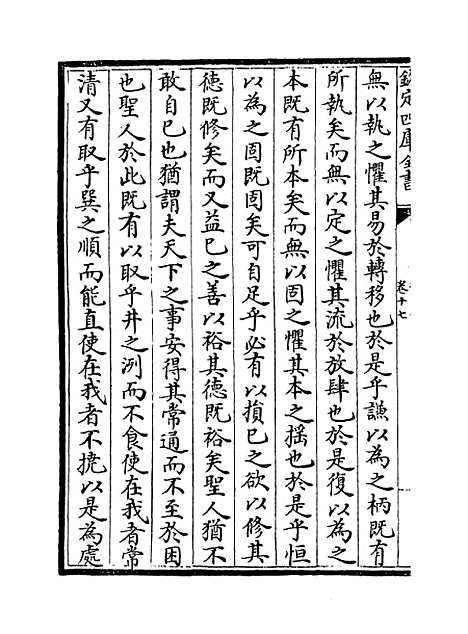 欽定四庫全書
卷十七
無以執之懼其易於轉移也於是乎謙以為之柄既有
所執矣而無以定之懼其流於放肆也於是復以為之
本既有所本矣而無以固之懼其本之搖也於是乎恒
以為之固既固矣可自足乎必有以損已之欲以修其
德既修矣而又益已之善以裕其德既裕矣聖人猶不
敢自已也猶謂夫天下之事安得其常通而不至於困
也聖人於此既有以取乎井之冽而不食使在我者常
清又有取乎巽之順而能直使在我者不撓以是為處